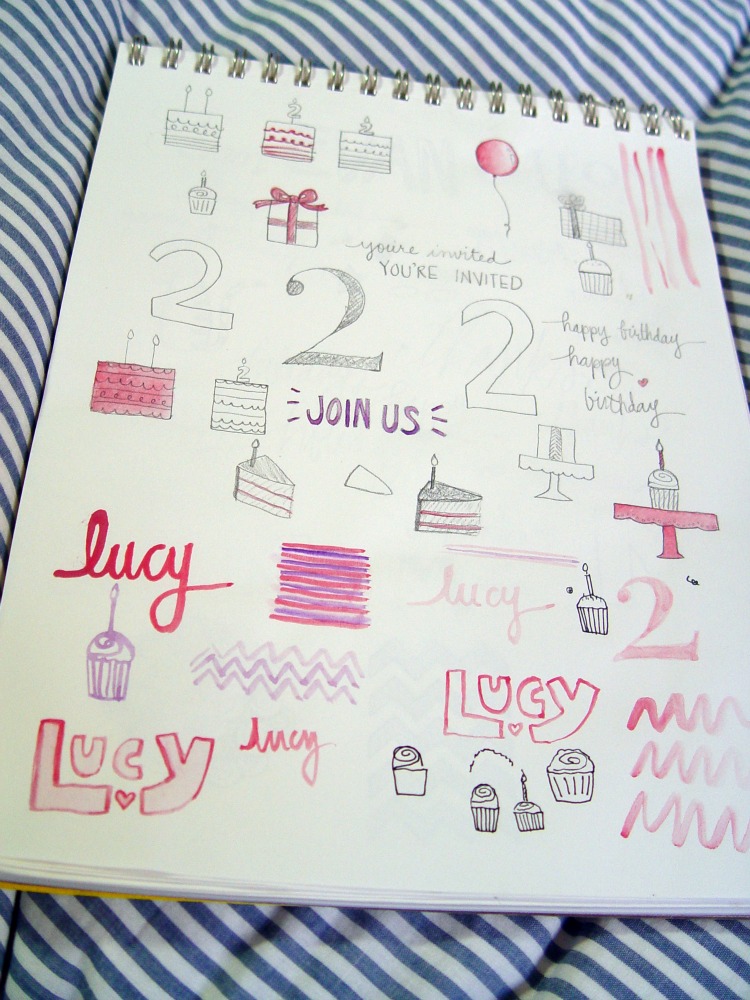 2
2
you're invited
YOU'RE INVITED
2
2
2
happy birthday
happy
birthday
2
JOIN US
lucy
lucy
2
LUCY
LUCY
lucy